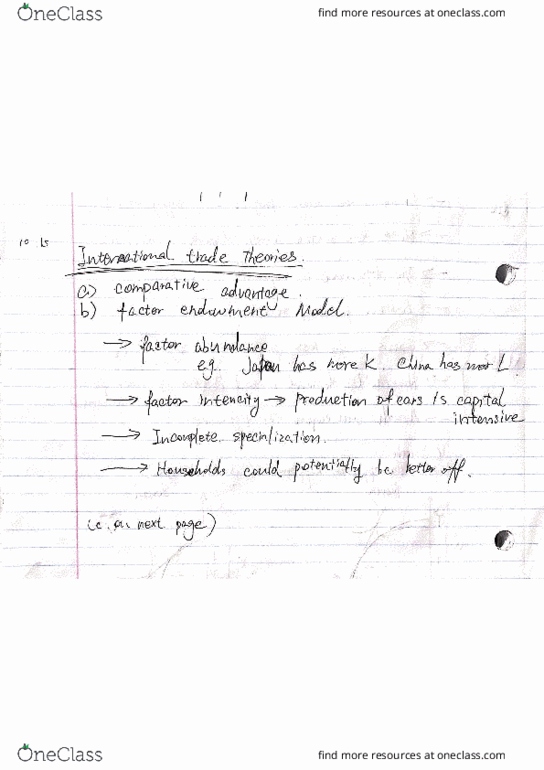 OneClass
find more resources at oneclass.com
10 15
International trade Theories.
a) comparative advantage.
b) factor endowment Model.
→ factor abundance
e.g. Japan has more K. China has more L.
→ factor intencity → production of cars is capital
intensive
→ Incomplete specialization.
→ Households could potentially be better off.
(c. on next page)
OneClass
find more resources at oneclass.com